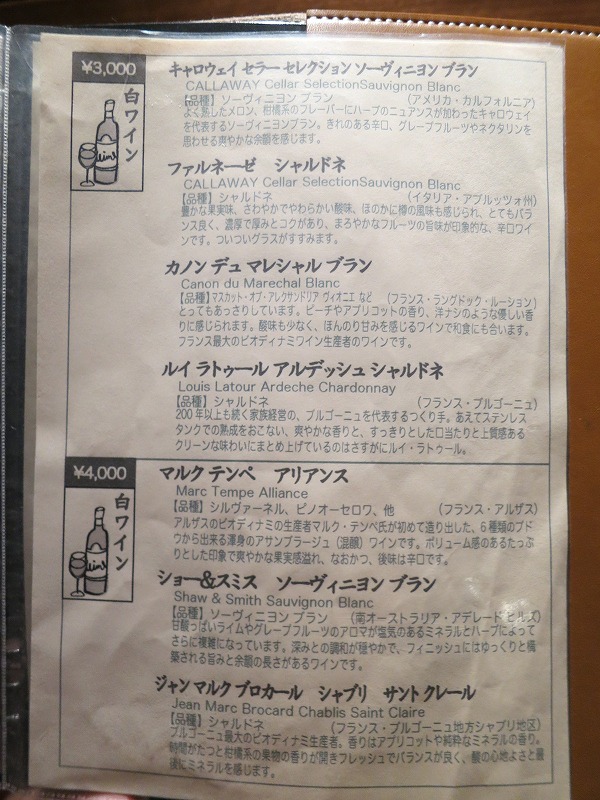 ¥3,000
白ワイン
Wine
キャロウェイ セラー セレクション ソーヴィニヨン ブラン
CALLAWAY Cellar SelectionSauvignon Blanc
【品種】ソーヴィニヨン ブラン （アメリカ・カルフォルニア）
よく熟したメロン、柑橘系のフレーバーにハーブのニュアンスが加わったキャロウェイ
を代表するソーヴィニヨンブラン。きれのある辛口、グレープフルーツやネクタリンを
思わせる爽やかな余韻を感じます。
ファルネーゼ シャルドネ
CALLAWAY Cellar SelectionSauvignon Blanc
【品種】シャルドネ （イタリア・アブルッツォ州）
豊かな果実味、さわやかでやわらかい酸味、ほのかに樽の風味も感じられ、とてもバラ
ンス良く、濃厚で厚みとコクがあり、まろやかなフルーツの旨味が印象的な、辛口ワイ
ンです。ついついグラスがすすみます。
カノン デュ マレシャル ブラン
Canon du Marechal Blanc
【品種】マスカット・オブ・アレクサンドリア ヴィオニエ など （フランス・ラングドック・ルーション）
とってもあっさりしています。ピーチやアプリコットの香り、洋ナシのような優しい香
りに感じられます。酸味も少なく、ほんのり甘みを感じるワインで和食にも合います。
フランス最大のビオディナミワイン生産者のワインです。
ルイ ラトゥール アルデッシュ シャルドネ
Louis Latour Ardeche Chardonnay
【品種】シャルドネ （フランス・ブルゴーニュ）
200年以上も続く家族経営の、ブルゴーニュを代表するつくり手。あえてステンレス
タンクでの熟成をおこない、爽やかな香りと、すっきりとした口当たりと上質感ある
クリーンな味わいにまとめ上げているのはさすがにルイ・ラトゥール。
¥4,000
白ワイン
Wine
マルク テンペ アリアンス
Marc Tempe Alliance
【品種】シルヴァーネル、ピノオーセロワ、他 （フランス・アルザス）
アルザスのビオディナミの生産者マルク・テンペ氏が初めて造り出した、6種類のブド
ウから出来る渾身のアサンブラージュ（混醸）ワインです。ボリューム感のあるたっぷ
りとした印象で爽やかな果実感溢れ、なおかつ、後味は辛口です。
ショー&スミス ソーヴィニヨン ブラン
Shaw & Smith Sauvignon Blanc
【品種】ソーヴィニヨン ブラン （南オーストラリア・アデレード ヒルズ）
甘酸っぱいライムやグレープフルーツのアロマが塩気のあるミネラルとハーブによって
さらに複雑になっています。深みとの調和が穏やかで、フィニッシュにはゆっくりと構
築される旨みと余韻の長さがあるワインです。
ジャン マルク ブロカール シャブリ サント クレール
Jean Marc Brocard Chablis Saint Claire
【品種】シャルドネ （フランス・ブルゴーニュ地方シャブリ地区）
ブルゴーニュ最大のビオディナミ生産者。香りはアプリコットや純粋なミネラルの香り。
時間がたつと柑橘系の果物の香りが開きフレッシュでバランスが良く、酸の心地よさと最
後にミネラルを感じます。